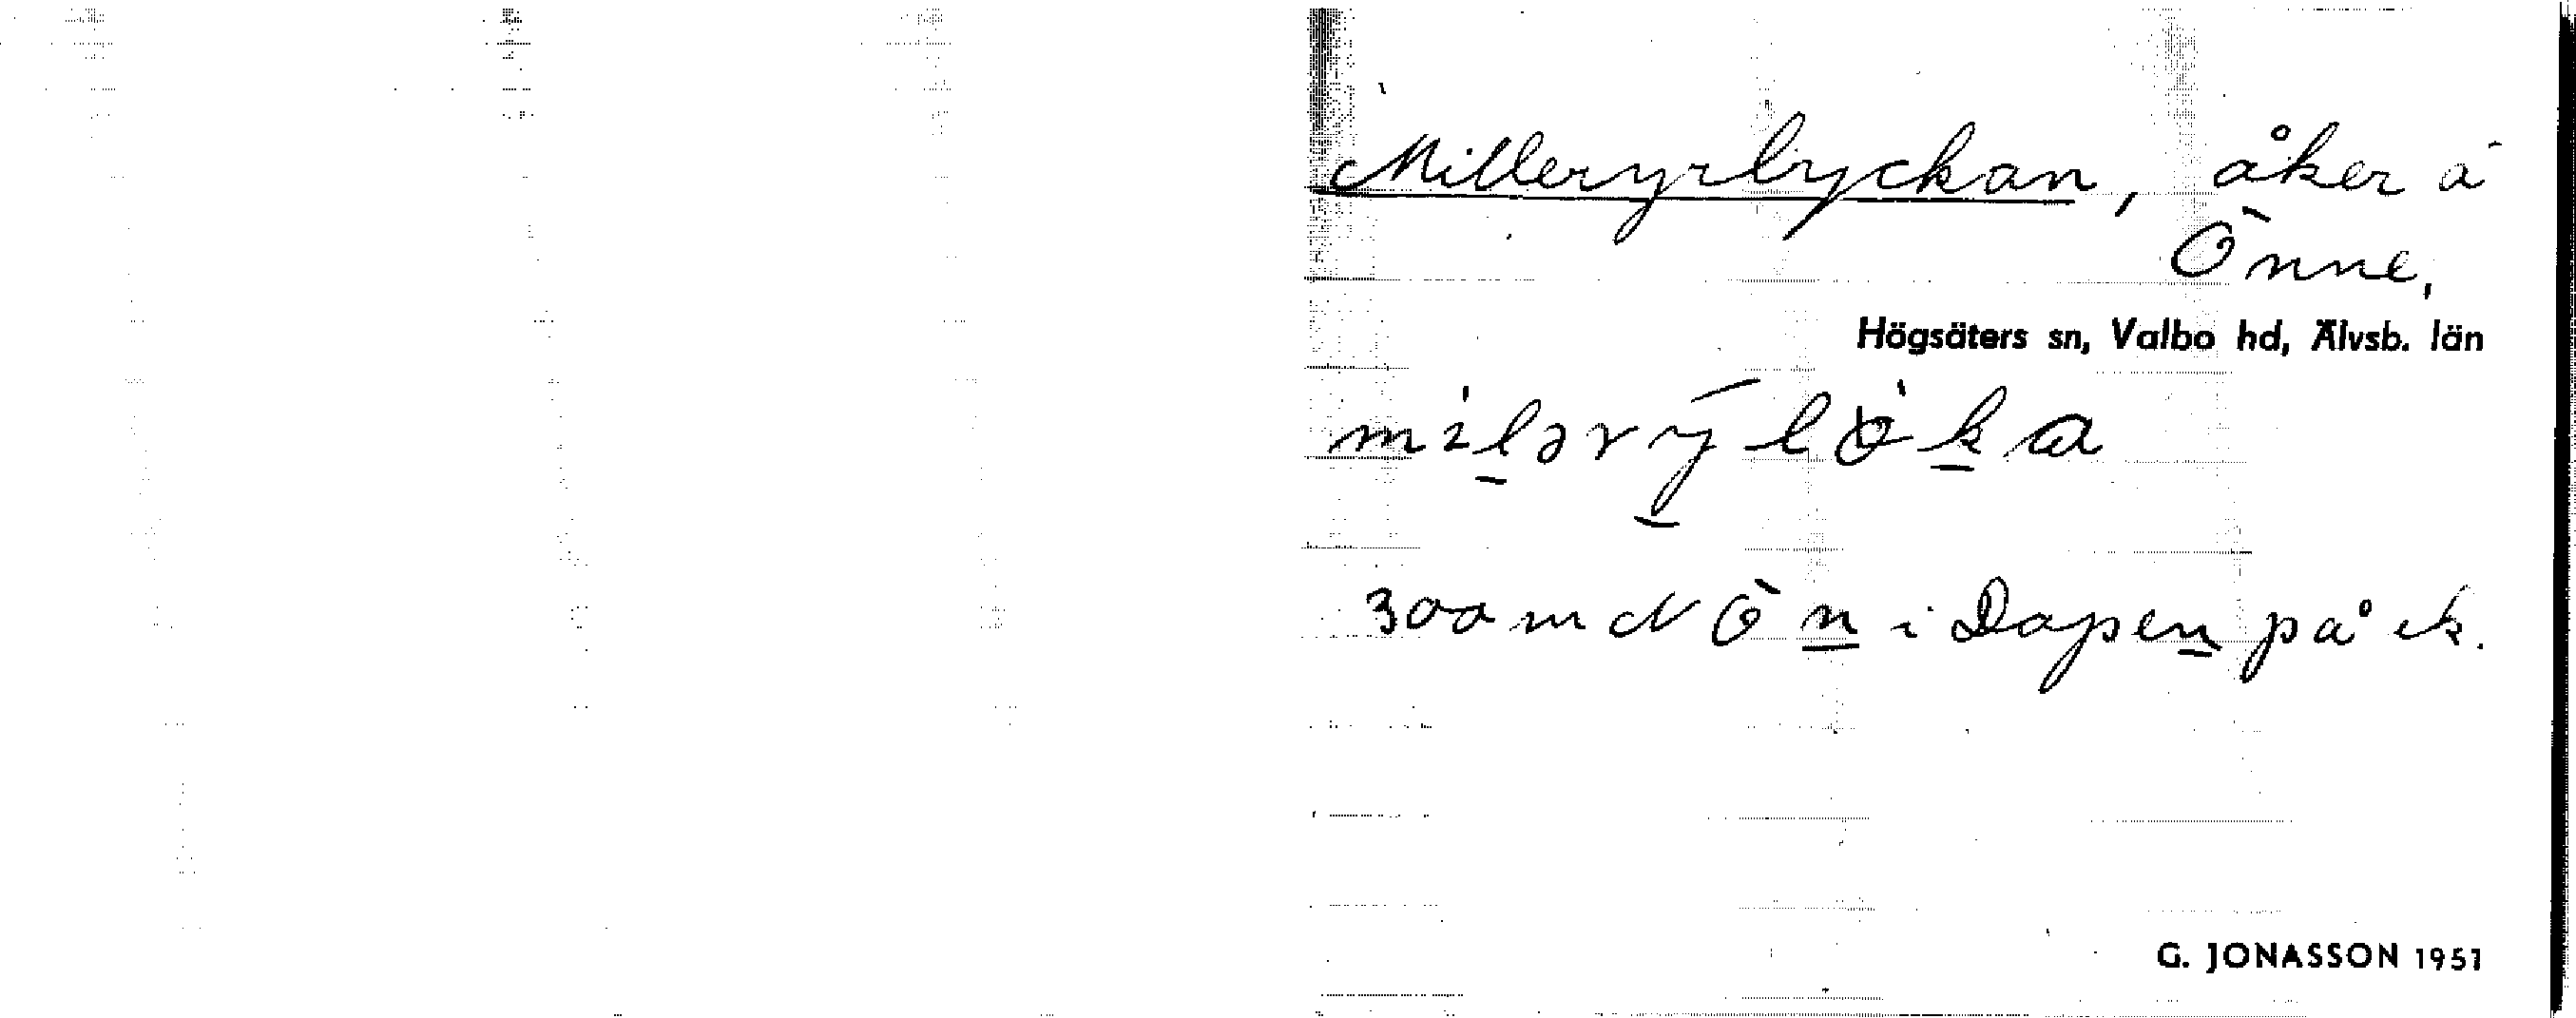 Milleryrlyckan, åker å
Önne,
Högsäters sn, Valbo hd, Älvsb. län
300 m N Ö n i Dapen på ek.
G. JONASSON 1951